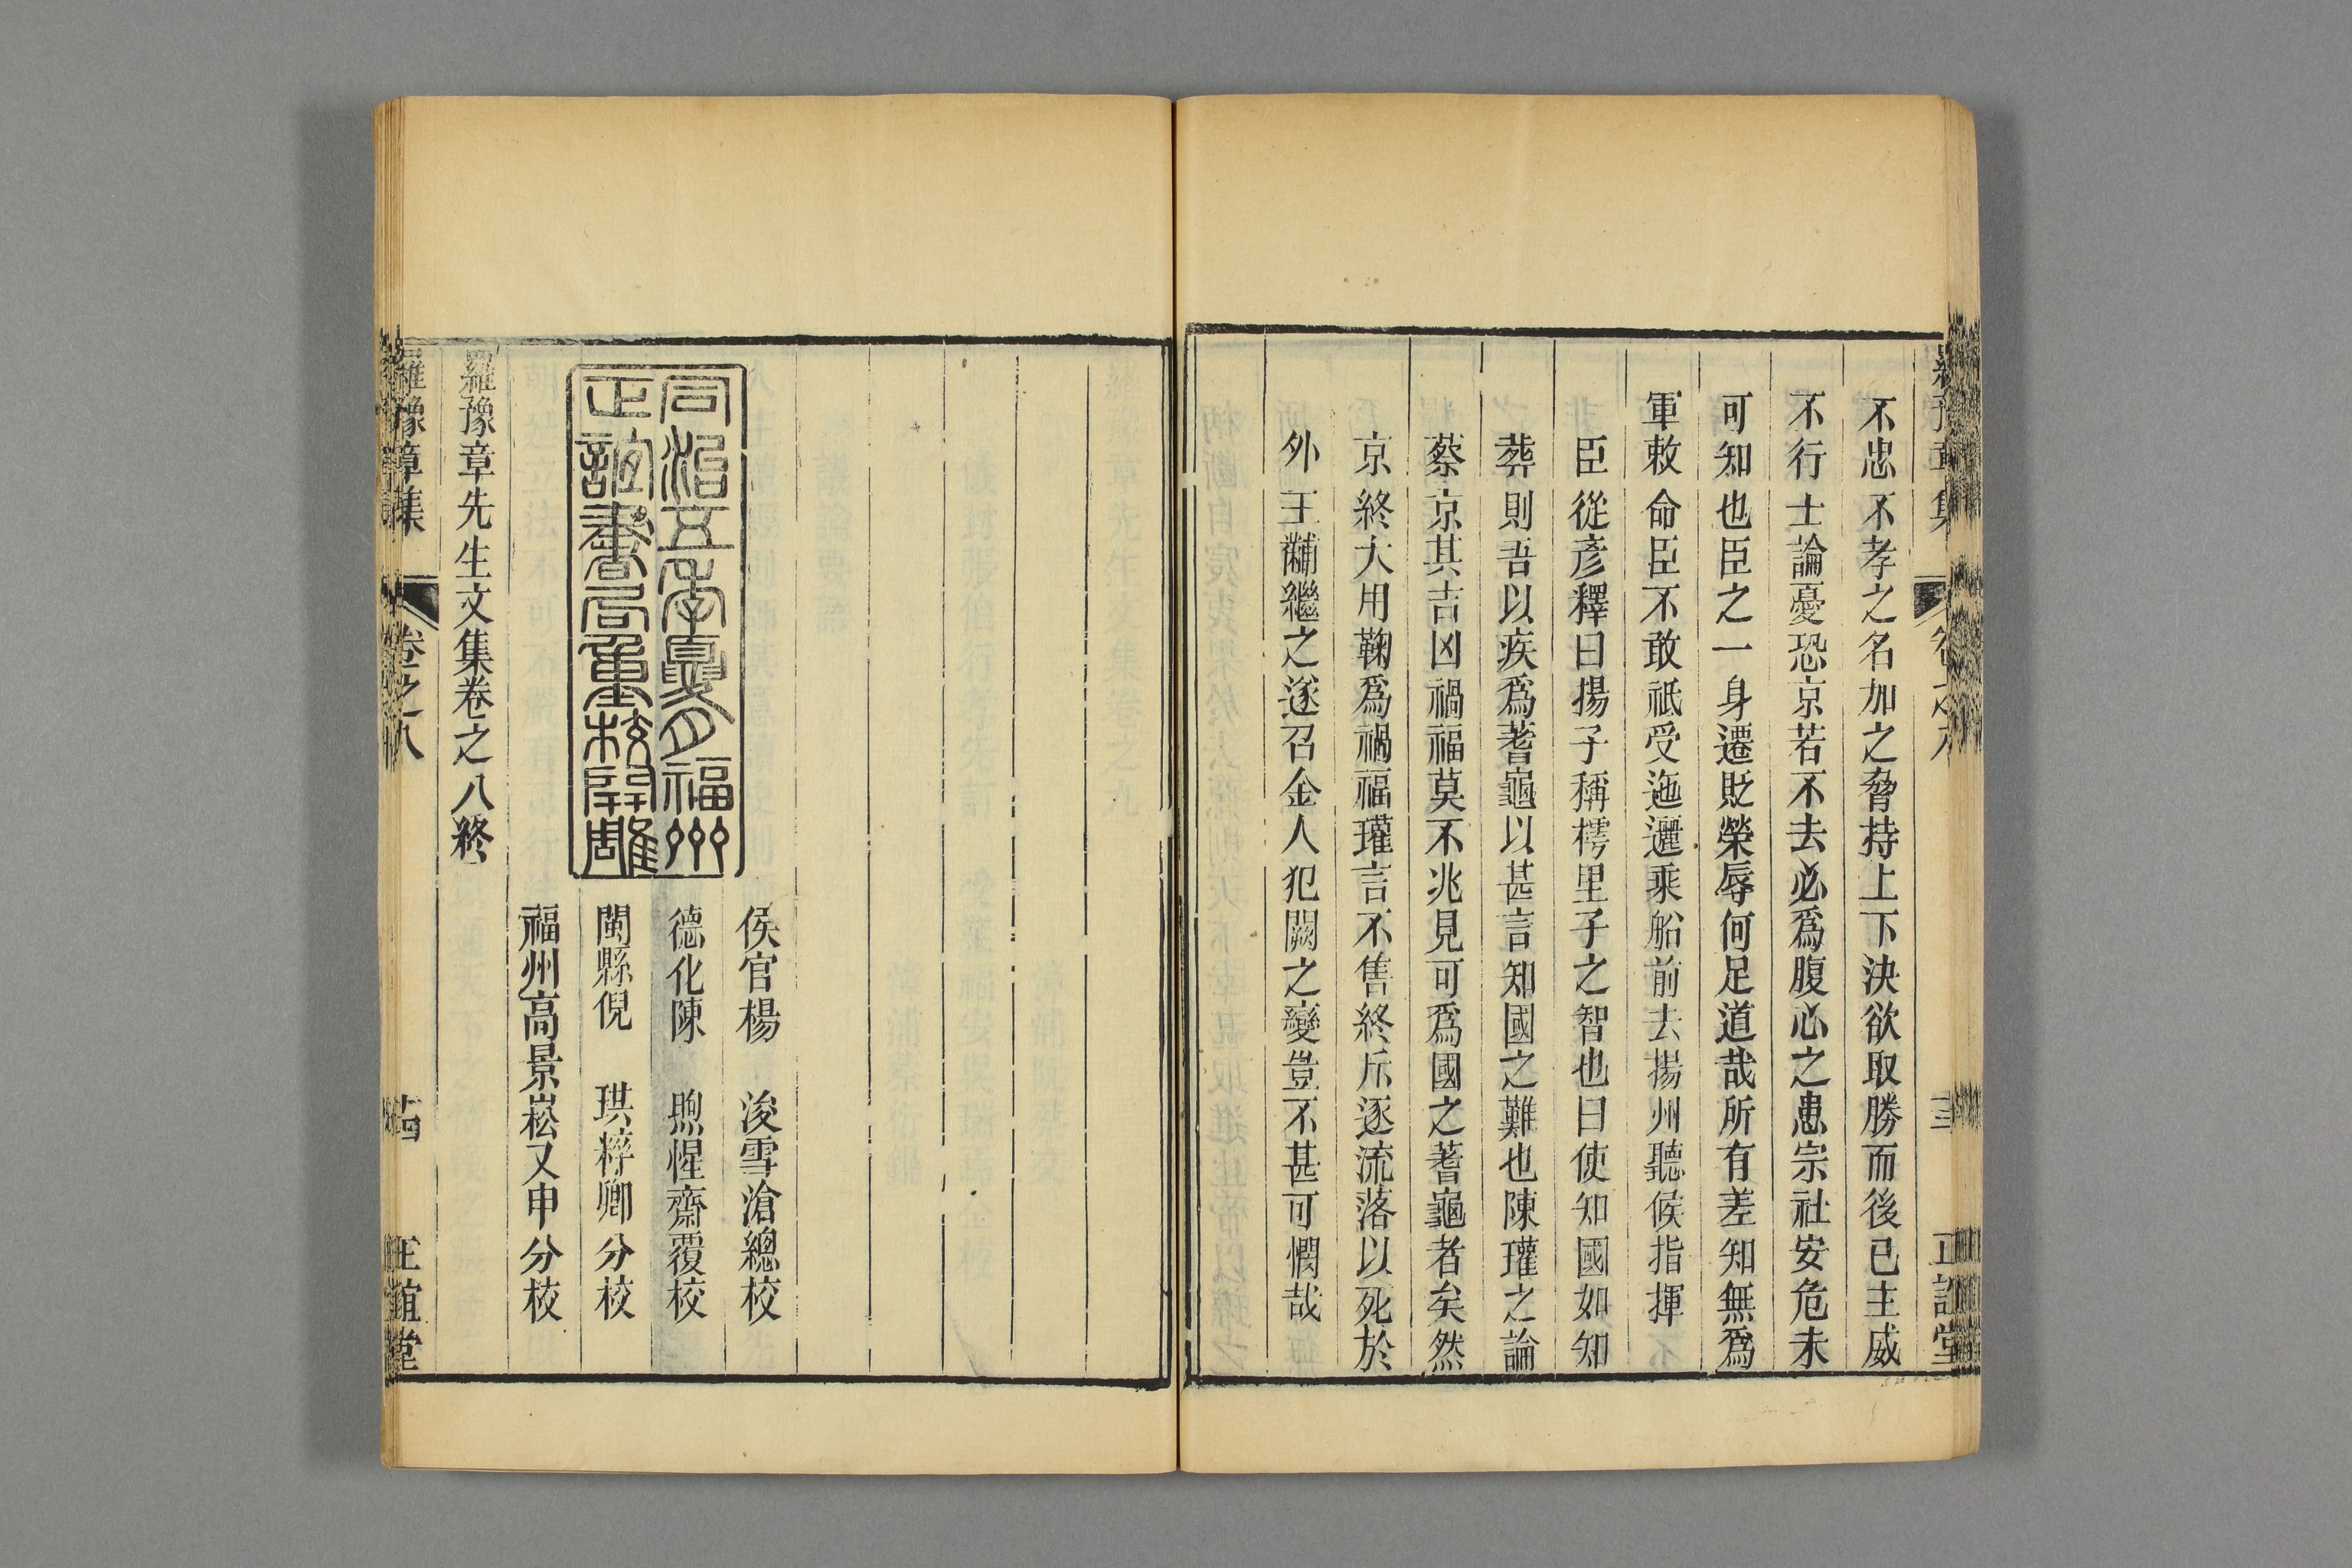 不忠不孝之名加之脅持上下決欲取勝而後已主威
不行士論憂恐京若不去必爲腹心之患宗社安危未
可知也臣之一身遷貶榮辱何足道哉所有差知無爲
軍敕命臣不敢祗受迤邐乘船前去揚州聽候指揮
臣從彥釋曰揚子稱樗里子之智也曰使知國如知
葬則吾以疾爲蓍龜以甚言知國之難也陳瓘之論
蔡京其吉凶禍福莫不兆見可爲國之蓍龜者矣然
京終大用鞠爲禍福瓘言不售終斥逐流落以死於
外王黼繼之遂召金人犯闕之變豈不甚可憫哉
同治五年夏月福州
正誼書局重校開雕
侯官楊 浚雪滄總校
德化陳 煦惺齋覆校
閩縣倪 珙粹卿分校
福州高景崧又申分校
羅豫章先生文集卷之八終
羅豫章集 卷之八 十四 正誼堂